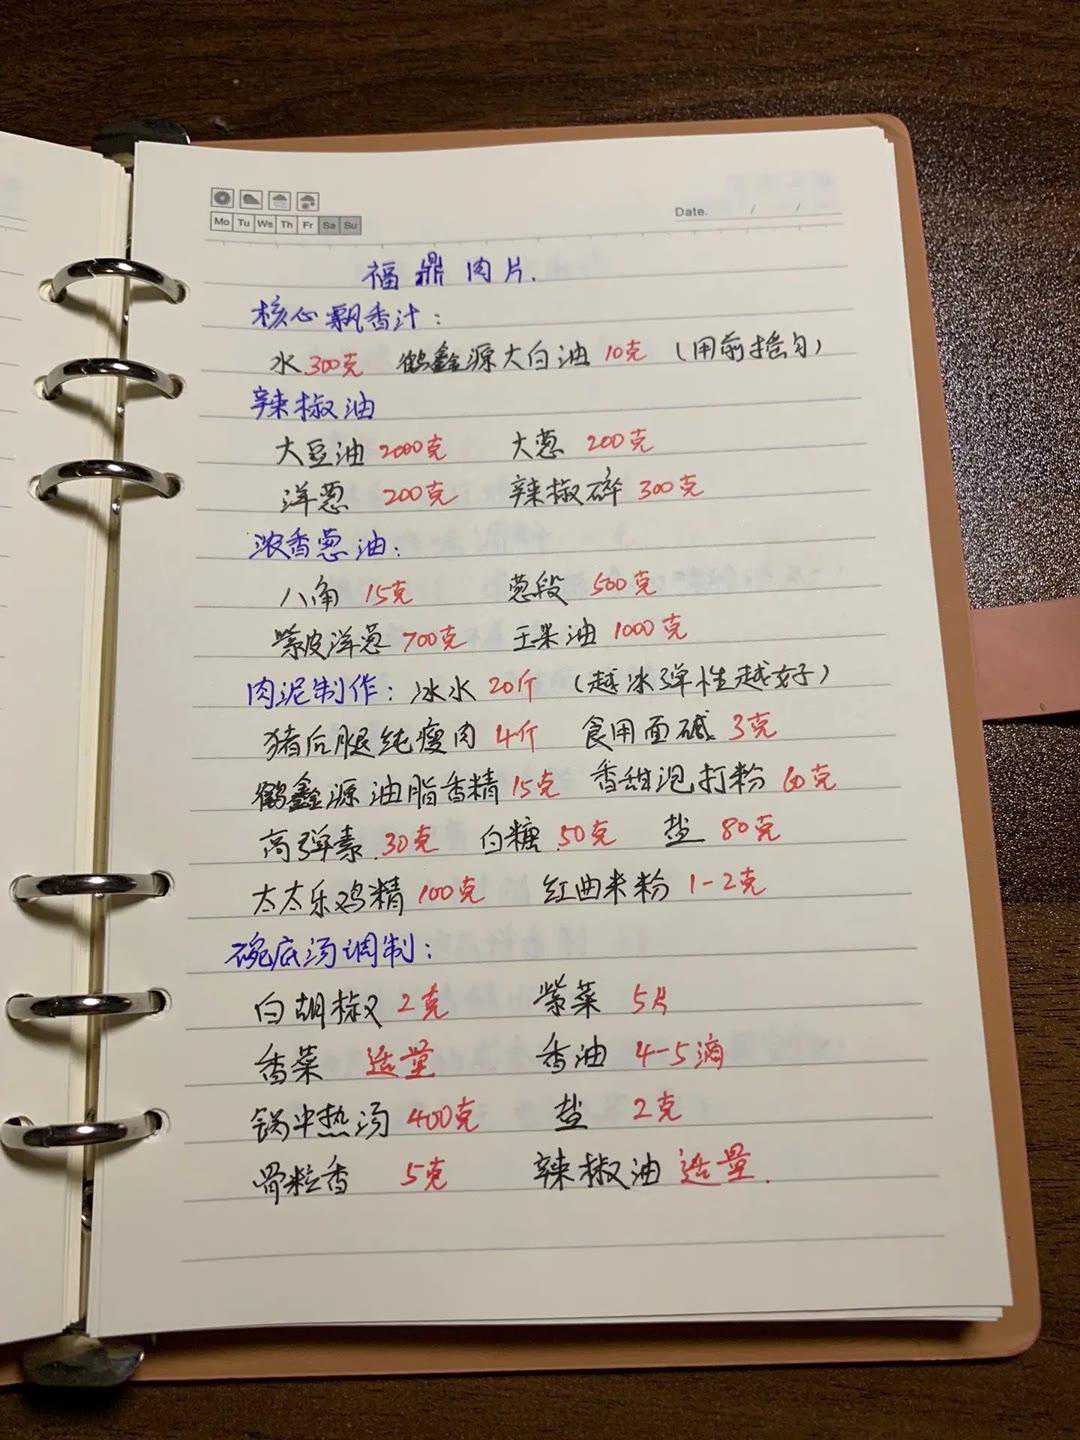 Mo Tu We Th Fr Sa Su
Date. / /
福鼎肉片.
核心飘香汁:
水300克 鹤鑫源大白油10克 (用前摇匀)
辣椒油
大豆油2000克 大葱200克
洋葱200克 辣椒碎300克
浓香葱油:
八角15克 葱段500克
紫皮洋葱700克 玉米油1000克
肉泥制作: 冰水20斤 (越冰弹性越好)
猪后腿纯瘦肉4斤 食用面碱3克
鹤鑫源油脂香精15克 香甜泡打粉60克
高弹素30克 白糖50克 盐80克
太太乐鸡精100克 红曲米粉1-2克
碗底汤调制:
白胡椒2克 紫菜5片
香菜适量 香油4-5滴
锅中热汤400克 盐2克
骨粒香5克 辣椒油适量.